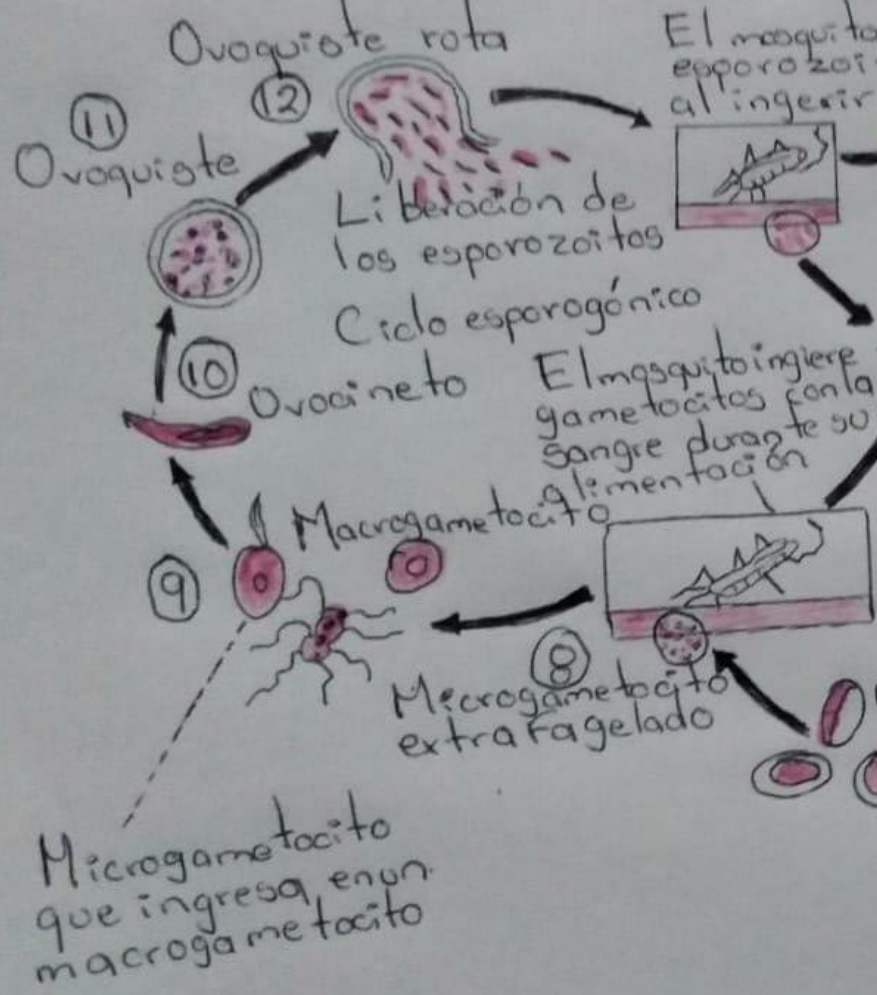 Ovoquiste rota
12
11
Ovoquiste
El mosquito
esporozoi
al ingerir
Liberación de
los esporozoitos
Ciclo esporogónico
10
Ovocineto
El mosquito ingiere
gametocitos con la
sangre durante su
alimentación
Macrogametocito
9
8
Microgametocito
extrafagelado
Microgametocito
que ingresa, en un
macrogametocito